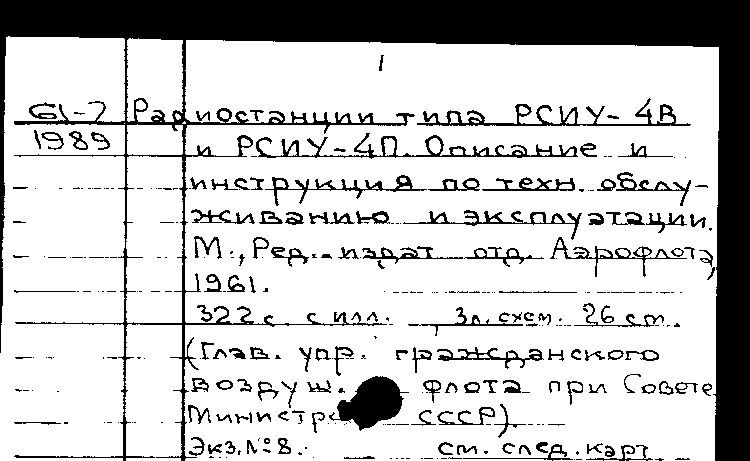 1
61-2 Радиостанции типа РСИУ-4В
1989 и РСИУ-4П. Описание и
инструкция по техн. обслу-
живанию и эксплуатации.
М., Ред.-издат отд. Аэрофлота,
1961.
322 с. с илл., 3 л. схем. 26 см.
(Глав. упр. гражданского
воздуш. флота при Совете
СССР).
Экз. №8. см. след. карт.